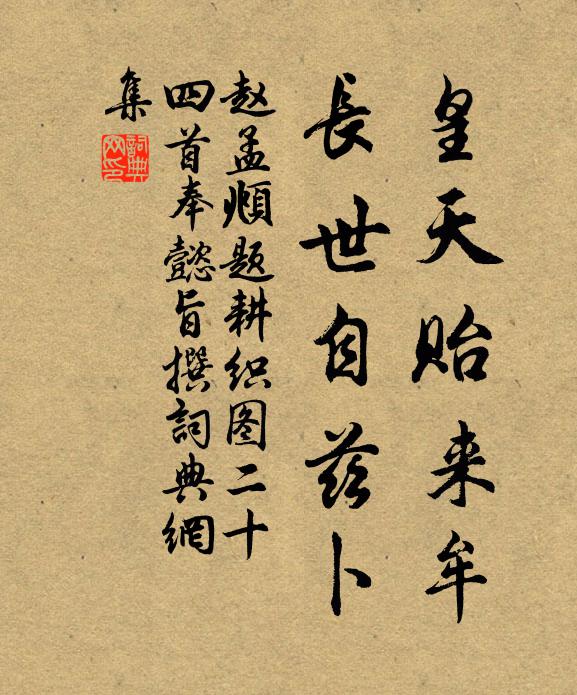 皇天貽来牟
長世自茲卜
赵孟頫题耕织图二十
四首奉懿旨撰詞典網
集
詞典
网印